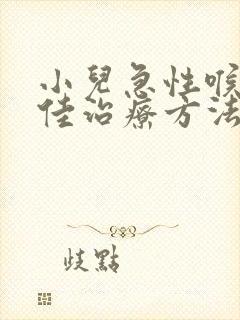 小兒急性喉
佳治療方法
歧點